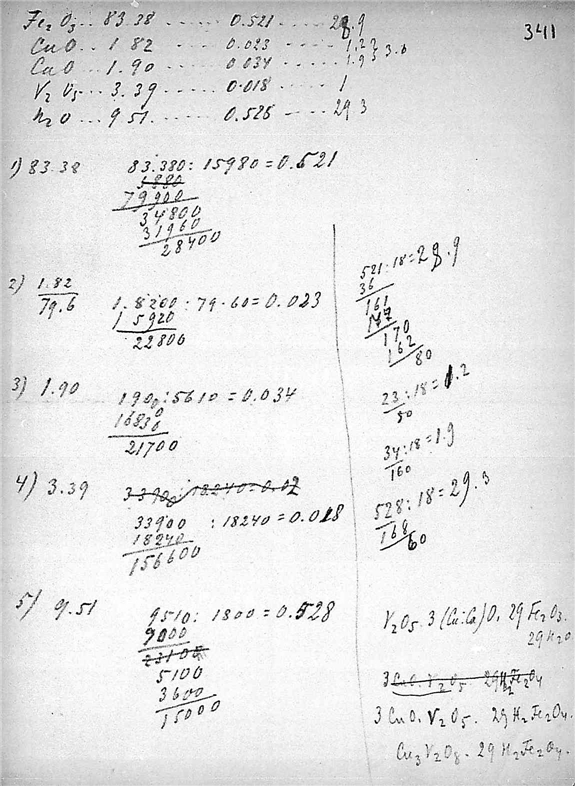 341
Fe2O3 .. 83.38 ---- 0.521 ---- 28.9
CuO .. 1.82 ---- 0.023 ---- 1.27
CaO ... 1.90 ---- 0.034 ---- 1.93 3.6
V2O5 .. 3.39 ---- 0.018 ---- 1
H2O ... 9.51 ---- 0.526 ---- 29.3
1) 83.38 83.380 : 15980 = 0.521
79900
34800
31960
28400
2) 1.82
79.6 1.8200 : 79.60 = 0.023
15920
22800
3) 1.90 1900 : 5610 = 0.034
16830
21700
4) 3.39 33900 : 18240 = 0.02
33900 : 18240 = 0.018
18240
156600
5) 9.51 9510 : 1800 = 0.528
9000
23100
5100
3600
15000
521 : 18 = 28.9
36
161
170
162
80
23 : 18 = 1.2
50
34 : 18 = 1.9
160
528 : 18 = 29.3
168
60
V2O5. 3(Cu:Ca)O. 29 Fe2O3.
29 H2O
3 CuO. V2O5. 29 H2Fe2O4
3 CuO. V2O5. 29 H2Fe2O4.
Cu3V2O8. 29 H2Fe2O4.